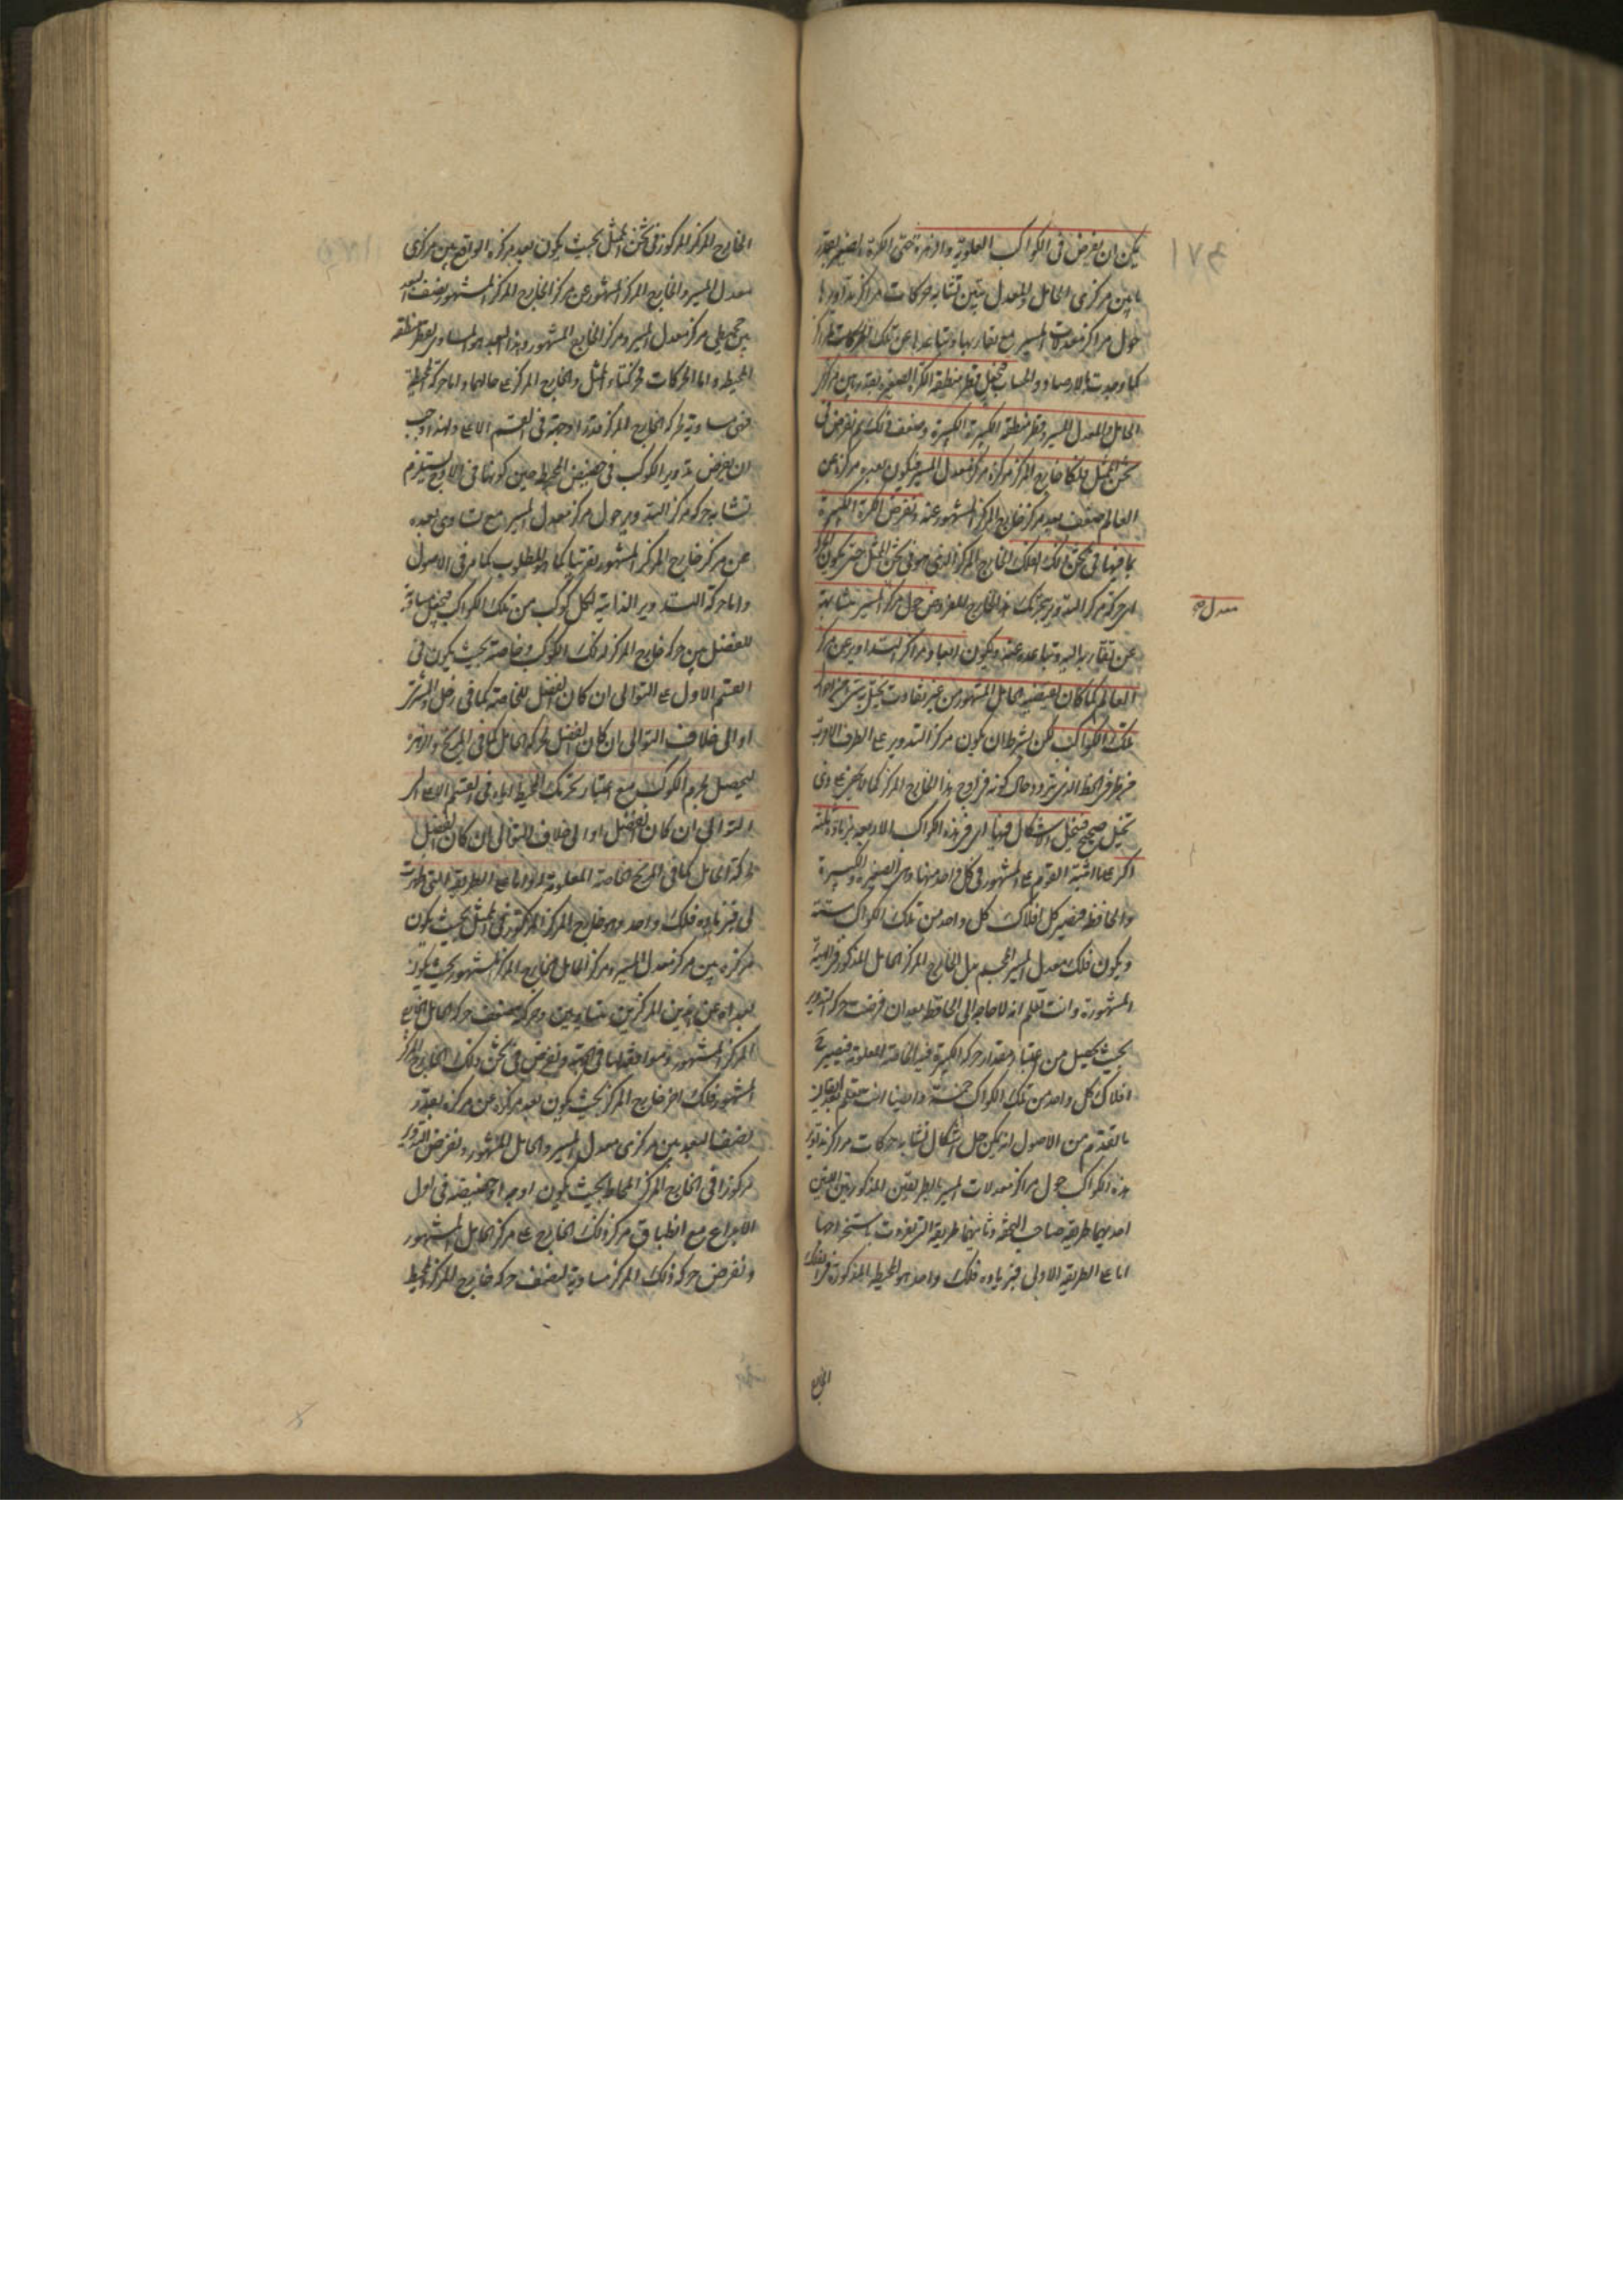 يمكن ان يفرض في الكواكب العلوية والزهرة
ما بين مركزى الحامل والمعدل تشابه حركات مراكز تداويرها
حول مراكز معدلات المسير مع تقاربها وتباعدها عن تلك المراكز
كما وجدت بالارصاد والحساب فيجعل قطر منطقة الكرة الصغيرة بقدر ما بين مركز
الحامل والمعدل للمسير وقطر منطقة الكبيرة وضعف ذلك ثم نفرض فى
ثخن الممثل فلكا خارج المركز مركزه مركز معدل المسير فيكون بعد مركزه عن
العالم ضعف بعد مركز خارج المركز المشهور عنه ونفرض الكرة الكبيرة
بما فيها في ثخن ذلك الفلك الخارج المركز الذى هو فى ثخن الممثل حتى يكون
حركة مركز التدوير بتحريك هذا الخارج المفروض حول مركز المسير متشابهة
معدل صح
عن تقاربه اليه وتباعده عنه ويكون ابعاد مراكز التداوير عن مركز
العالم كما كان يقتضيه الحامل المشهور من غير تفاوت
تلك الكواكب لكن بشرط ان يكون مركز التدوير على الطرف الاقرب
من الخط الذى يتردد حال كونه فى اوج هذا الخارج المركز كما لا يخفى على ذى
تخيل صحيح فينحل الاشكال فيها اى فى هذه الكواكب الاربعة بزيادة ثلثة
اكر على ما اثبته القوم على المشهور في كل واحد منها وهى الصغيرة والكبيرة
والحافظة فيصير كل افلاك كل واحد من تلك الكواكب ستة
ويكون فلك معدل المسير المجسم بدل الخارج المركز الحامل المذكور فى الهيئة
المشهورة وانت تعلم انه لا حاجة الى الحافظة بعد ان فرضت حركة التدوير
بحيث يحصل من اعتبار مقدار حركة الكبيرة فيه الخاصة المعلومة فيصير ح
افلاك كل واحد من تلك الكواكب خمسة وايضا انت تعلم
ما تقدم من الاصول انه يمكن حل اشكال تشابه حركات مراكز تداوير
هذه الكواكب حول مراكز معدلات المسير بالطريقين المذكورتين اللتين
احديهما طريقة صاحب التحفة وثانيتهما طريقة التى تفردت باستخراجها
اما على الطريقة الاولى فبزيادة فلك واحد هو المحيطة المذكورة
الخارج
الخارج المركز المركوز فى ثخن الممثل بحيث يكون بعد مركزه الواقع بين مركزى
معدل المسير والخارج المركز المشهور عن مركز الخارج المركز المشهور نصف البعد
مركز معدل المسير ومركز الخارج المشهور وهذا البعد هو المساوى لقطر منطقة
المحيطة واما الحركات فحركتا الممثل والخارج المركز على حالهما واما حركة المحيطة
فهى مساوية لحركة الخارج المركز قدرا وجهة فى القسم الاعلى ولهذا وجب
ان يفرض تدوير الكوكب فى حضيض المحيط حين كونها فى الاوج ليستلزم
تشابه حركة مركز التدوير حول مركز معدل المسير مع تساوى بعده
عن مركز خارج المركز المشهور تقريبا كما هو المطلوب كما مر فى الاصول
واما حركة التدوير الذاتية لكل كوكب من تلك الكواكب فيجعل مساوية
للفضل بين حركة خارج المركز لذلك الكوكب وخاصته بحيث يكون فى
القسم الاول على التوالى ان كان الفضل للخاصة كما فى زحل والمشترى
او الى خلاف التوالى ان كان الفضل لحركة الحامل كما فى المريخ والزهرة
ليحصل لجرم الكوكب مع اعتبار تحريك المحيط اياه فى القسم الاعلى الى
التوالى ان كان الفضل او الى خلاف التوالى ان كان الفضل
لحركة الحامل كما فى المريخ الخاصة المعلومة له واما على الطريقة التى ظهرت
لى فبزيادة فلك واحد وهو خارج المركز المركوز فى الممثل بحيث يكون
مركزه بين مركز معدل المسير ومركز الحامل الخارج المركز المشهور بحيث يكون
بعداه عن هذين المركزين متساويين وحركته نصف حركة الحامل الخارج
المركز المشهور وموافقة لها فى الجهة ونفرض فى ثخن ذلك الخارج المركز
المشهور فلك اخر خارج المركز بحيث يكون بعد مركزه عن مركزه بقدر
نصف البعد بين مركزى معدل المسير والحامل المشهور ونفرض التدوير
مركوزا فى الخارج المركز المحاط بحيث يكون اوجه او حضيضه فى اول
الاوج مع انطباق مركز ذلك الخارج على مركز الحامل المشهور
ونفرض حركة ذلك المركز مساوية لنصف حركة خارج المركز المحيط